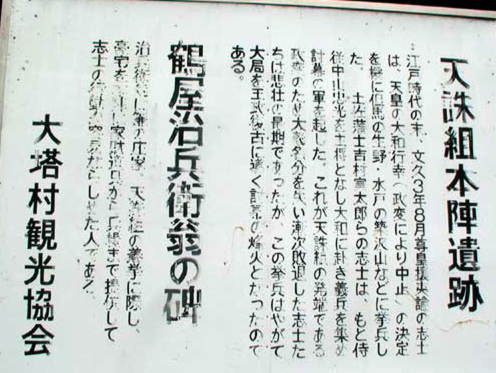 天誅組本陣遺跡
江戸時代の末、文久3年8月尊皇攘夷論の志士
は、天皇の大和行幸(政変により中止)の決定
を機に但馬の生野・水戸の筑波山などに挙兵し
た。土佐藩士吉村寅太郎らの志士は、もと侍
従中山忠光を主将となし大和に赴き義兵を集め
討幕の軍を起した。これが天誅組の発端である
政変のため大義名分を失い漸次敗退した志士た
ちは悲壮な最期であったが、この挙兵はやがて
大局を王政復古に導く討幕の烽火となったので
ある。
鶴屋治兵衛翁の碑
治兵衛は 庄家、天誅組の義挙に際し、
豪宅を 家財道具から兵糧まで提供して
志士の ならしめた人である。
大塔村観光協会